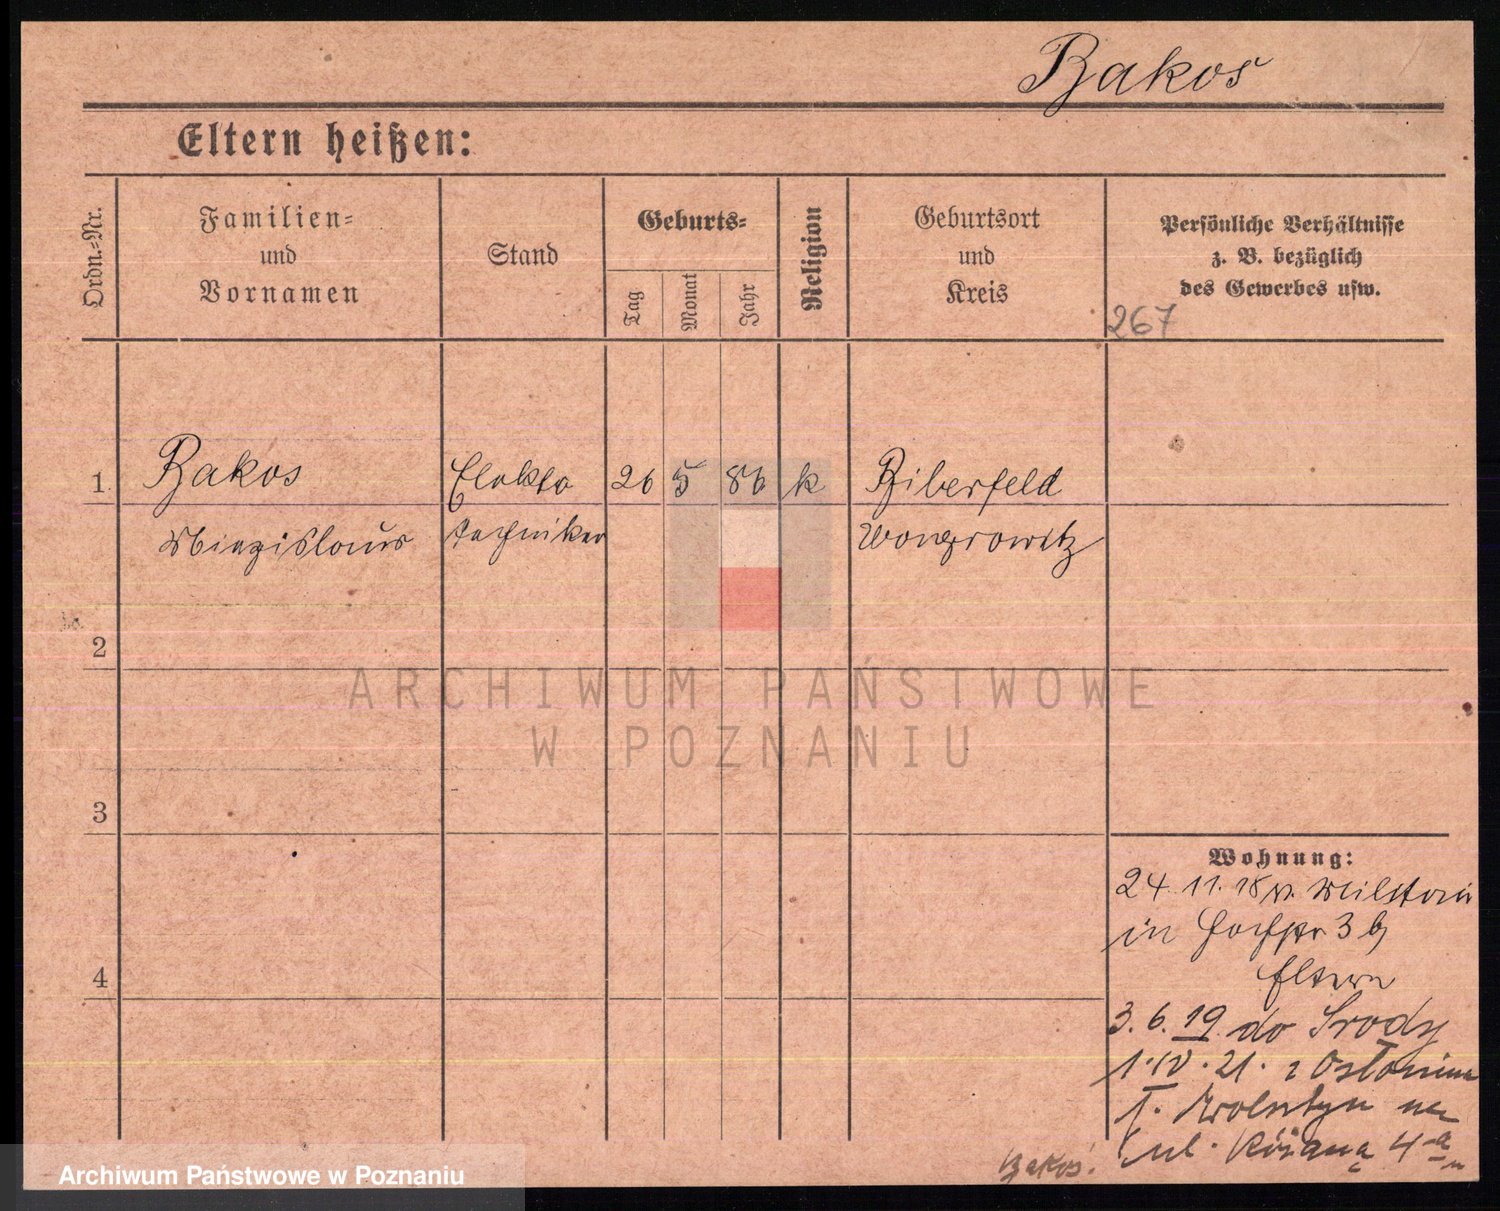 Bakos
Eltern heißen:
Ordn.=Nr.
Familien=
und
Vornamen
Stand
Geburts=
Tag
Monat
Jahr
Religion
Geburtsort
und
Kreis
Persönliche Verhältnisse
z. B. bezüglich
des Gewerbes usw.
267
1 Bakos Elektro 26 5 86 k Biberfeld
Miezislaus techniker Wongrowitz
2
3
4
Wohnung:
24. 11. 18 v.
in 3 b
Eltern
3. 6. 19 do Środy
1·IV·21· z Osłonina
p. Wolsztyn na
ul. Różaną 4a
Bakoś.
ARCHIWUM PAŃSTWOWE
W POZNANIU
Archiwum Państwowe w Poznaniu